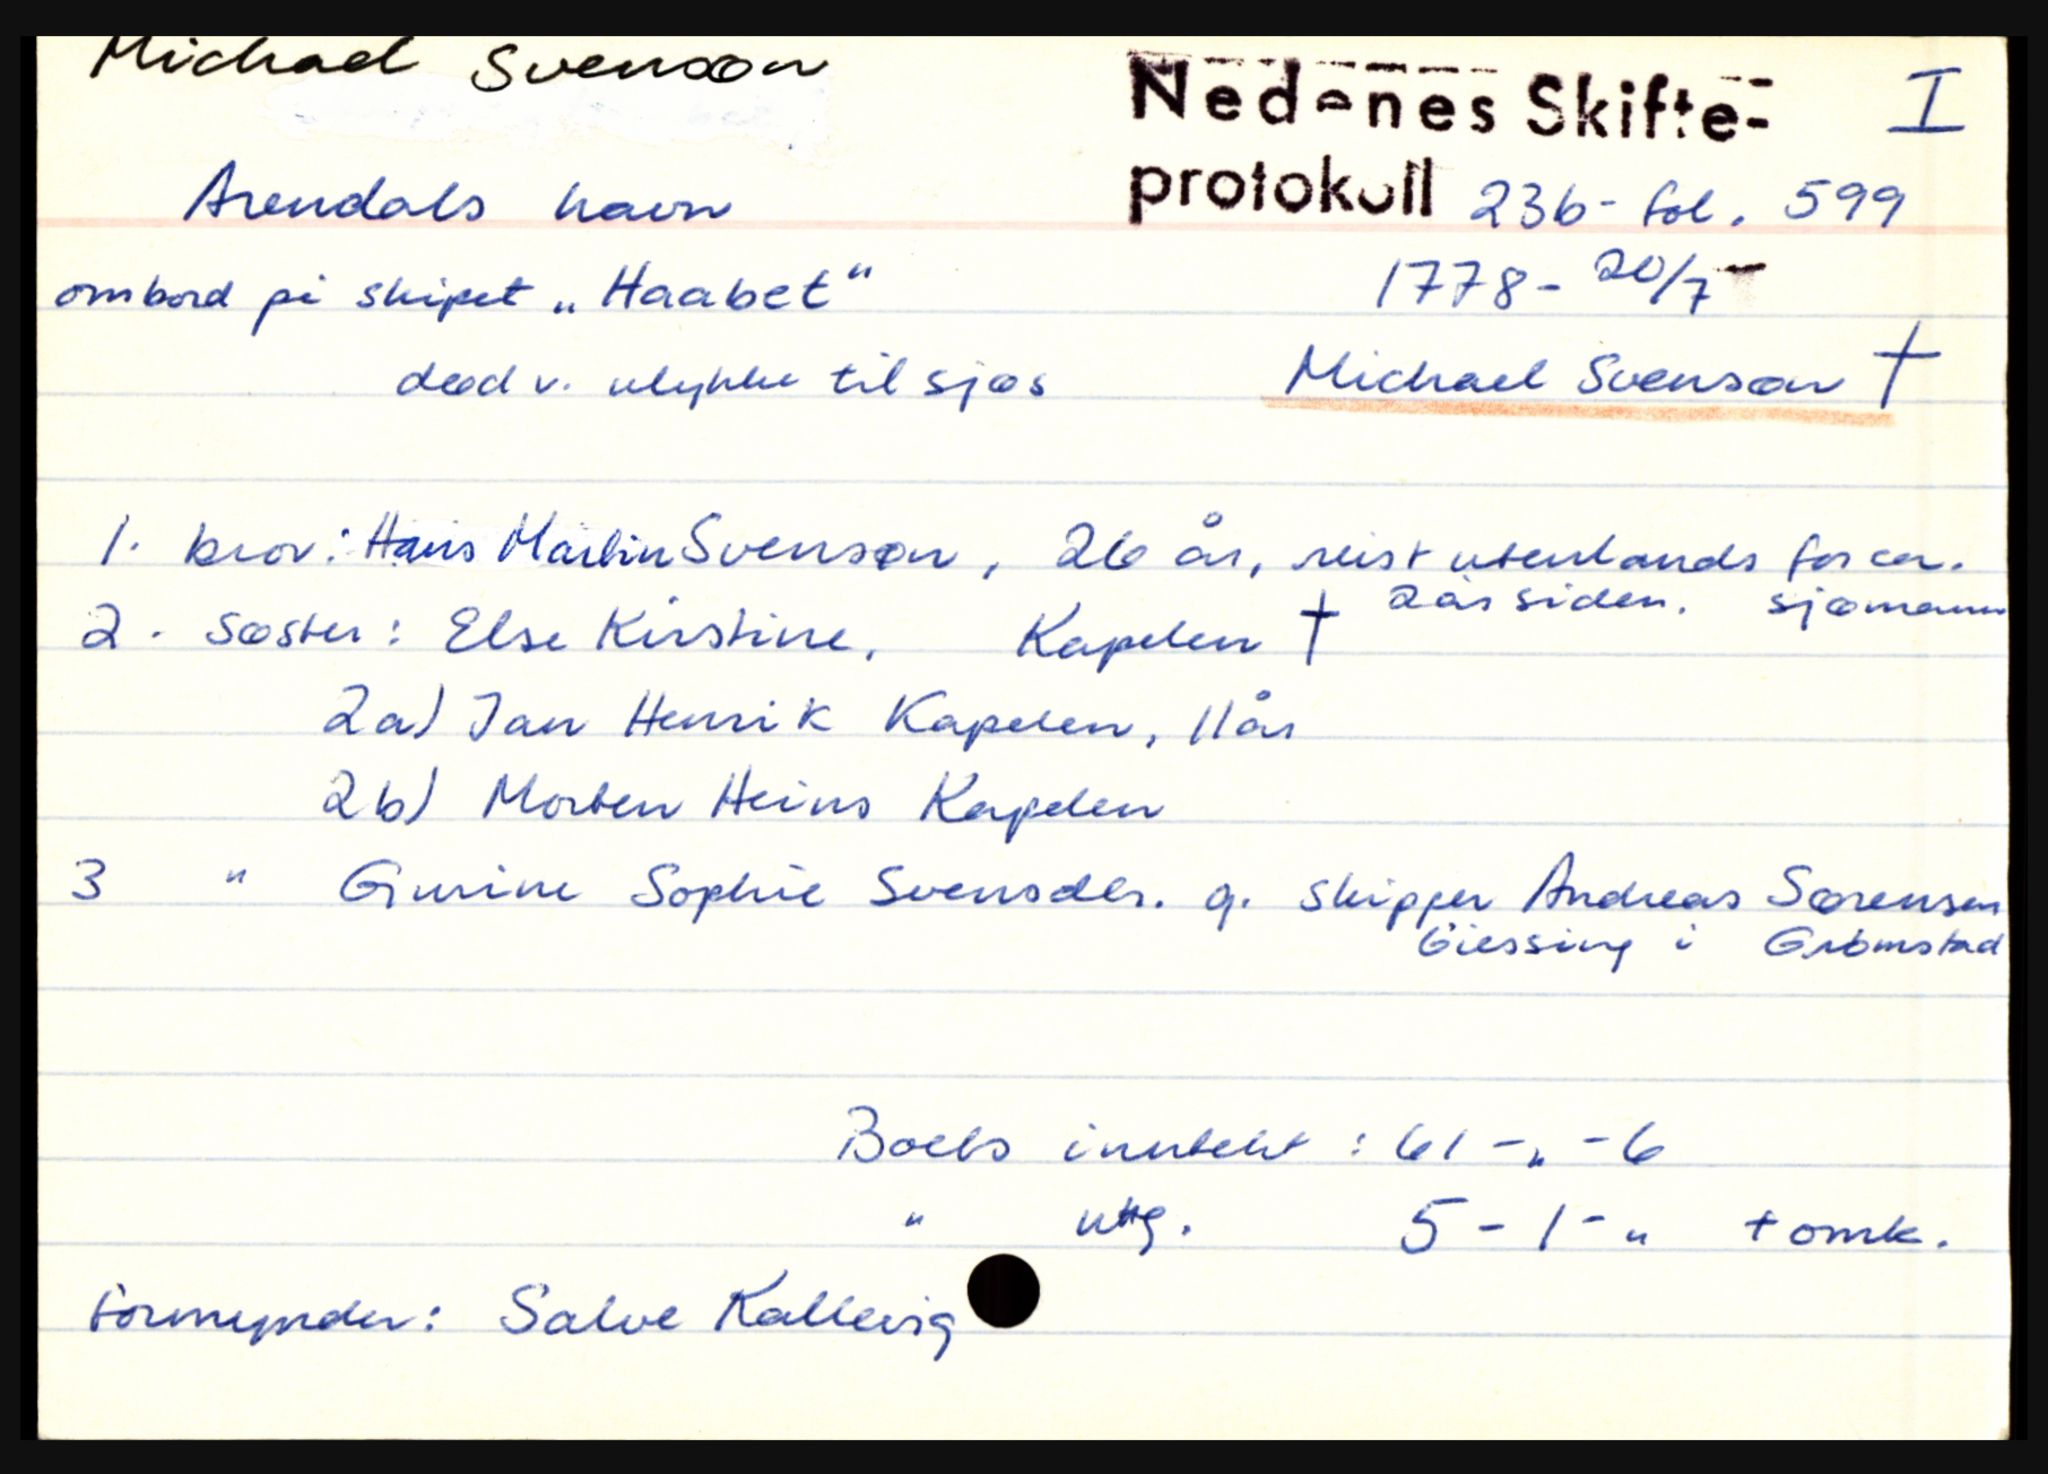 Michael Svenson
Nedenes Skifte-
protokoll 23b - fol. 599
I
Arendals havn
ombord på skipet „Haabet“
1778 - 20/7
død v. ulykke til sjøs
Michael Svenson †
1. bror: Hans Martin Svenson, 26 år, reist utenlands for ca.
2 år siden. sjømann
2. søster: Else Kirstine, Kapelen †
2a) Jan Henrik Kapelen, 11 år
2b) Morten Heins Kapelen
3 " Gurine Sophie Svensdtr. g. skipper Andreas Sørensen
Giessing i Grömstad
Boets inntekt: 61 - " - 6
" utg. 5 - 1 - " + omk.
Formynder: Salve Kallevig